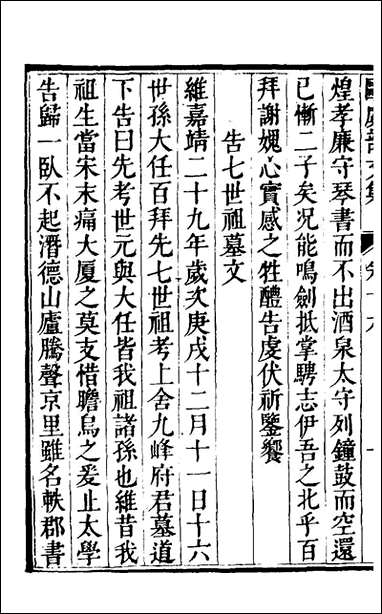 虞部文集 卷十六
煌孝廉守琴書而不出酒泉太守列鐘鼓而空還
已慚二子矣况能鳴劍抵掌騁志伊吾之北乎百
拜謝媿心實感之牲醴告虔伏祈鑒饗
告七世祖墓文
維嘉靖二十九年歲次庚戌十二月十一日十六
世孫大任百拜先七世祖考上舍九峰府君墓道
下告曰先考世元與大任皆我祖諸孫也維昔我
祖生當宋末痛大厦之莫支惜瞻烏之爰止太學
告歸一臥不起潛德山廬騰聲京里雖名軼郡書